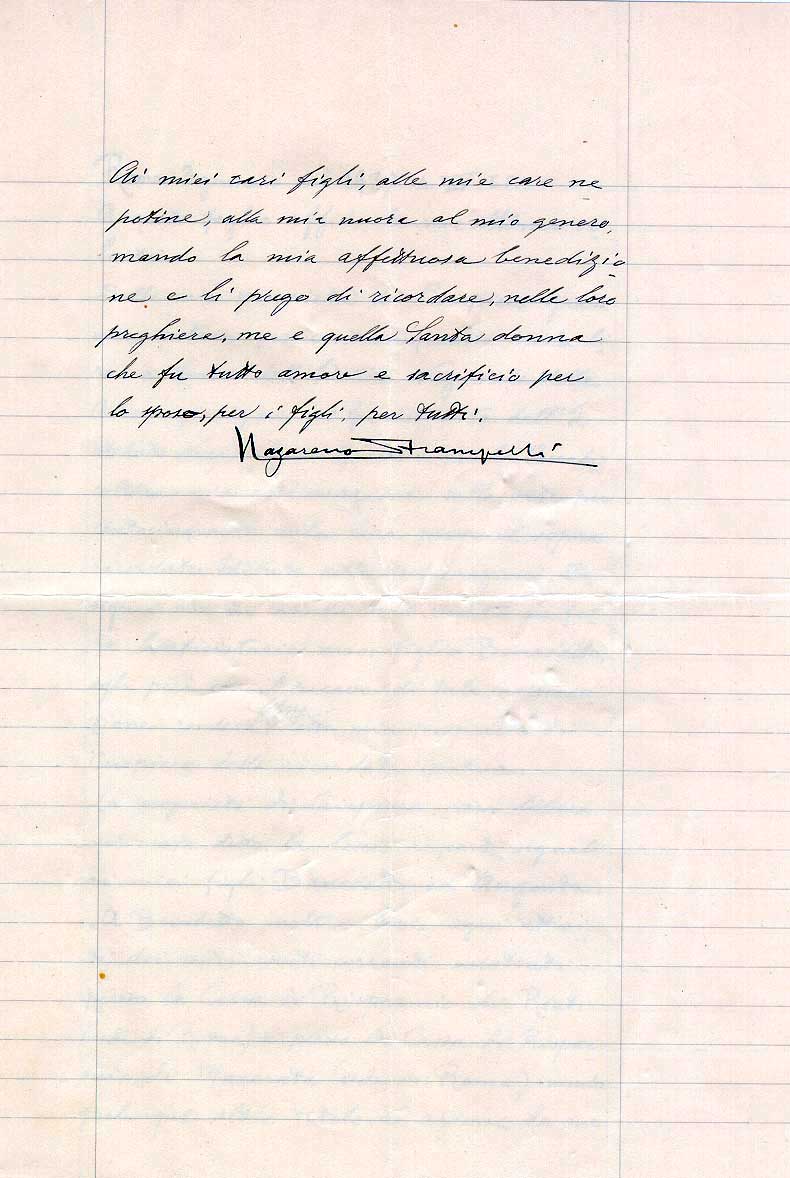 Ai miei cari figli, alle mie care ne
potine, alla mia nuora al mio genero,
mando la mia affettuosa benedizio
ne e li prego di ricordare, nelle loro
preghiere, me e quella Santa donna
che fu tutto amore e sacrificio per
lo sposo, per i figli, per tutti.
Nazareno Strampelli